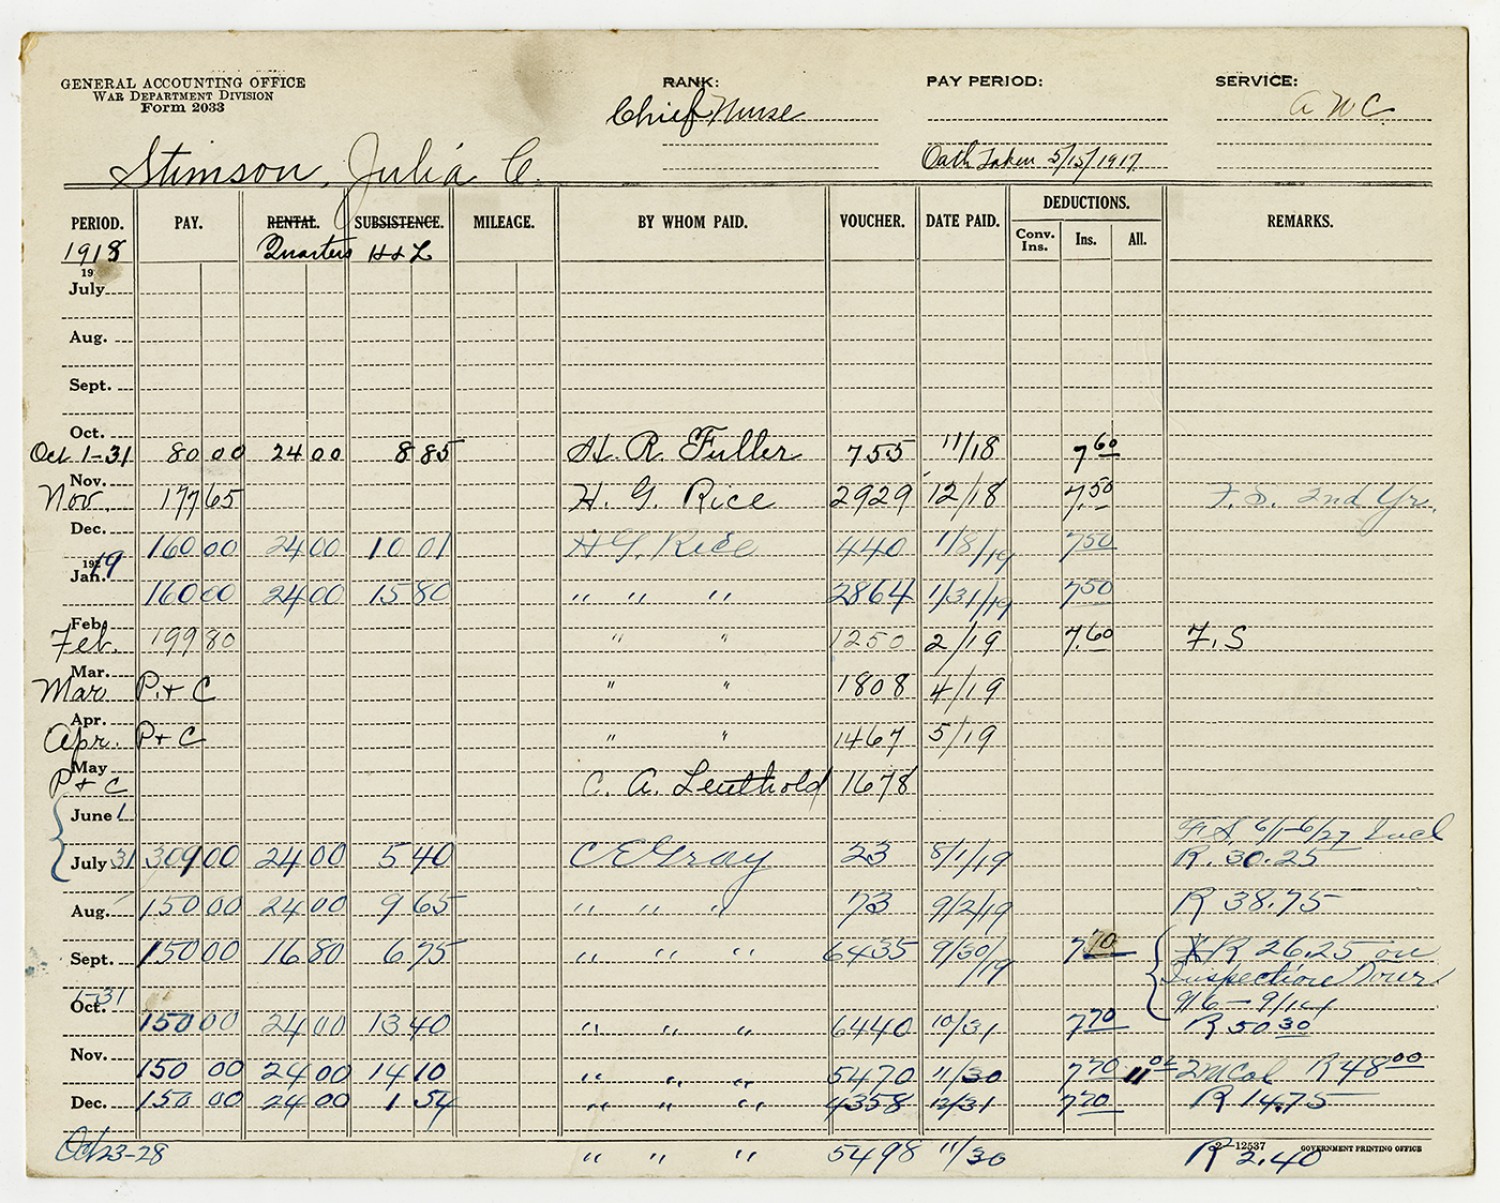 GENERAL ACCOUNTING OFFICE
WAR DEPARTMENT DIVISION
Form 2033
RANK: Chief Nurse
PAY PERIOD:
SERVICE: A W C
Stimson, Julia C.
Oath Taken 5/15/1917
PERIOD. PAY. RENTAL. SUBSISTENCE. MILEAGE. BY WHOM PAID. VOUCHER. DATE PAID. DEDUCTIONS. REMARKS.
Conv. Ins. Ins. All.
1918 Quarters H+L
19
July
Aug.
Sept.
Oct.
Oct 1-31 80 00 24 00 8 85 H. R. Fuller 755 11/18 7 60
Nov.
Nov. 177 65 H. G. Rice 2929 12/18 7.50 F.S. 2nd Yr.
Dec.
160 00 24 00 10 01 H G. Rice 440 1/8/19 7 50
192 19
Jan.
160 00 24 00 15 80 " " " 2864 1/31/19 7 50
Feb.
Feb. 199 80 " " 1250 2/19 7.60 F.S
Mar.
Mar P.+C " " 1808 4/19
Apr.
Apr. P+C " " 1467 5/19
May
P+C C. A. Leuthold 1678
June 1
F S, 6/1-6/27 Incl
July 31 309 00 24 00 5 40 C E Gray 23 8/1/19 R. 30.25
Aug. 150 00 24 00 9 65 " " " 73 9/2/19 R 38.75
Sept. 150 00 16 80 6 75 " " " 6435 9/30/19 7 70 R 26.25 on
Inspection Tour
1-31
Oct. 9/6-9/14
150 00 24 00 13 40 " " " 6440 10/31 7 70 R 50 30
Nov.
150 00 24 00 14 10 " " " 5470 11/30 7 70 R 48 00
Dec. 150 00 24 00 1 54 " " " 4358 12/31 7 70 R 14.75
2-12537 GOVERNMENT PRINTING OFFICE
Oct 23-28 " " " 5498 11/30 R 2.40